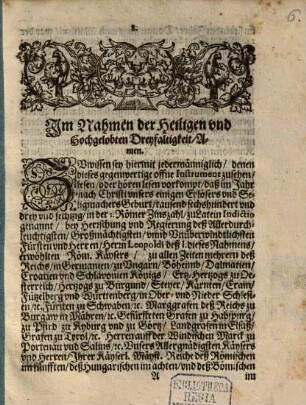 Im Nahmen der Heiligen vnd
Hochgelobten Dreyfaltigkeit/ A-
men.
wissen sey hiermit jedermänniglich/ denen
dieses gegenwertige offne Instrument zusehen/
lesen/ oder hören lesen vorkompt/ daß im Jahr
nach Christi vnsers einigen Erlösers vnd Se-
ligmachers Geburt/ tausend sechshundert vnd
drey vnd sechzig/ in der 1. Römer Zinszahl/ zu Latein Indictio
genannt/ bey Herrschung vnd Regierung deß Allerdurch-
leuchtigsten/ Großmächtigsten/ vnd Vnüberwindtlichsten
Fürsten vnd Herren/ Herrn Leopoldi deß I. dieses Nahmens/
erwöhlten Röm. Käysers/ zu allen Zeiten mehrern deß
Reichs/ in Germanien/ Hungarn/ Böheimb/ Dalmatien/
Croatien vnd Schlavonien Königs/ Ertz-Hertzogs zu De-
sterreich/ Hertzogs zu Burgund/ Steyer/ Kärnten/ Crain/
Lützelberg vnd Würtenberg/ in Ober- vnd Nieder Schlesi-
en/ ꝛc. Fürsten zu Schwaben/ ꝛc. Marggrafen deß Reichs zu
Burgaw in Mähren/ ꝛc. Gefürsteten Grafen zu Habspurg/
zu Pfird/ zu Kyburg vnd zu Görtz/ Landgrafen in Elsaß/
Grafen zu Tyrol/ ꝛc. Herren auff der Windischen Marck/ zu
Portenau vnd Salins/ ꝛc. Vnsers Allergnädigsten Käysers
vnd Herren/ Ihrer Käyserl. Mayst. Reiche deß Römischen
im fünfften/ deß Hungarischen im achten/ vnd deß Bömischen
A im
BIBLIOTHECA
REGIA